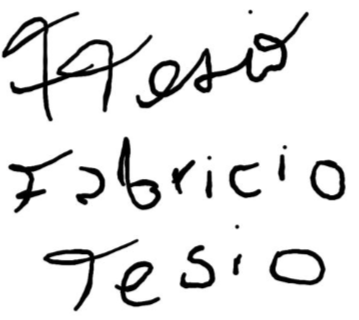 FTesio
Fabricio
Tesio